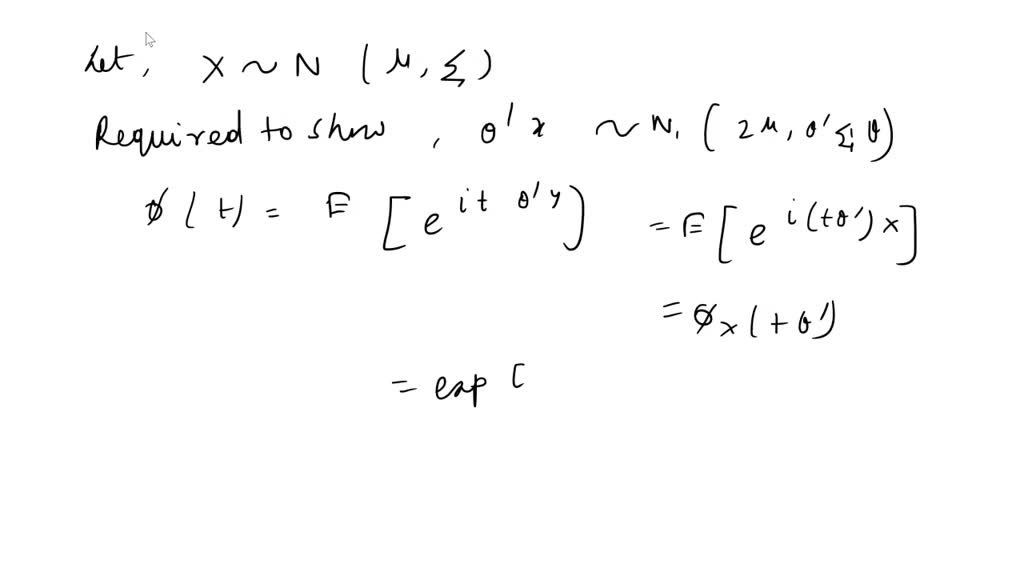 Let, X ~ N (μ, Σ)
Required to show, θ'x ~ N₁ (2μ, θ'Σθ)
ϕ(t) = E [e^{it θ'y}] = E [e^{i(tθ')x}]
= ϕ_x(tθ')
= exp [